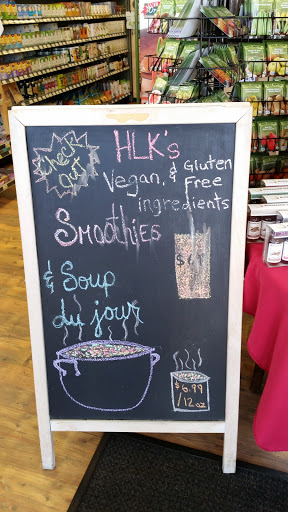 Check
out
HLK's
Vegan, & Gluten
Free
ingredients
Smoothies
& Soup
du jour
$6.99
/12oz